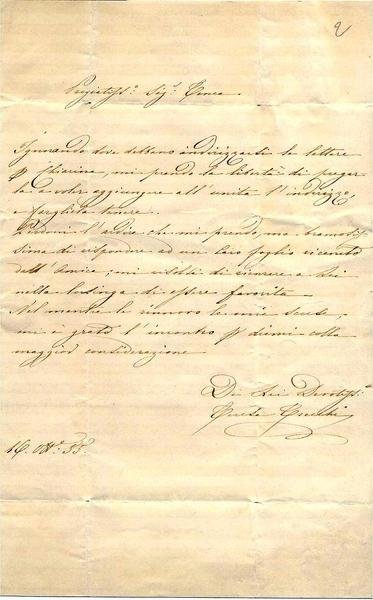 2
Pregiatiss.º Sig.r Tenca
Ignorando dove debbano indirizzarsi le lettere
p Chiarina, mi prendo la libertà di pregar-
la a voler aggiungere all'unita l'indirizzo,
e farglela tenere.
Perdoni l'ardire che mi prendo, ma bramosis-
sima di rispondere ad un caro foglio ricevuto
dall'Amica; mi risolsi di ricorrere a Lei
nella lusinga di essere favorita
Nel mentre le rinnovo le mie scuse,
mi è grato l'incontro p dirmi colla
maggior considerazione
Di Lei Devotiss.ª
16. 35.